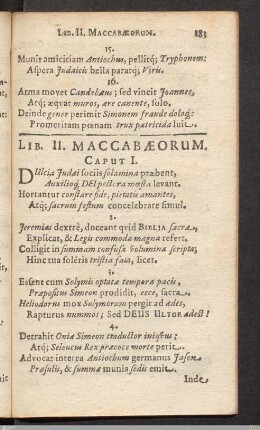 LIB. II. MACCABÆORUM. 183
15.
Munit amicitiam Antiochus, pellitq; Tryphonem:
Aspera Judaicis bella paratq; Viris.
16.
Arma movet Candebæus; sed vincit Joannes,
Atq; æquat muros, arce canente, solo.
Deinde gener perimit Simonem fraude dolóq;
Promeritam pœnam trux patricida luit.
LIB. II. MACCABÆORUM.
CAPUT I.
DUlcia Judæi sociis solamina præbent,
Auxilioq; DEI pectora mœsta levant.
Hortantur constare fide, pietatis amantes,
Atq; sacrum festum concelebrare simul.
2.
Jeremias dextrè, doceant quid BIBLIA sacra,
Explicat, & Legis commoda magna refert.
Colligit in summam confusa volumina scripta;
Hinc tua soleris tristia fata, licet.
3.
Essent cum Solymis optatæ tempora pacis,
Præpositus Simeon prodidit, ecce, sacra.
Heliodorus mox Solymorum pergit ad ædes,
Rapturus nummos; Sed DEUS ULTOR adest!
4.
Detrahit Oniæ Simeon traductor iniquus;
Atq; Seleucus Rex præcoce morte perit.
Advocat interea Antiochum germanus Jason
Præsulis, & summa munia sedis emit.
Inde